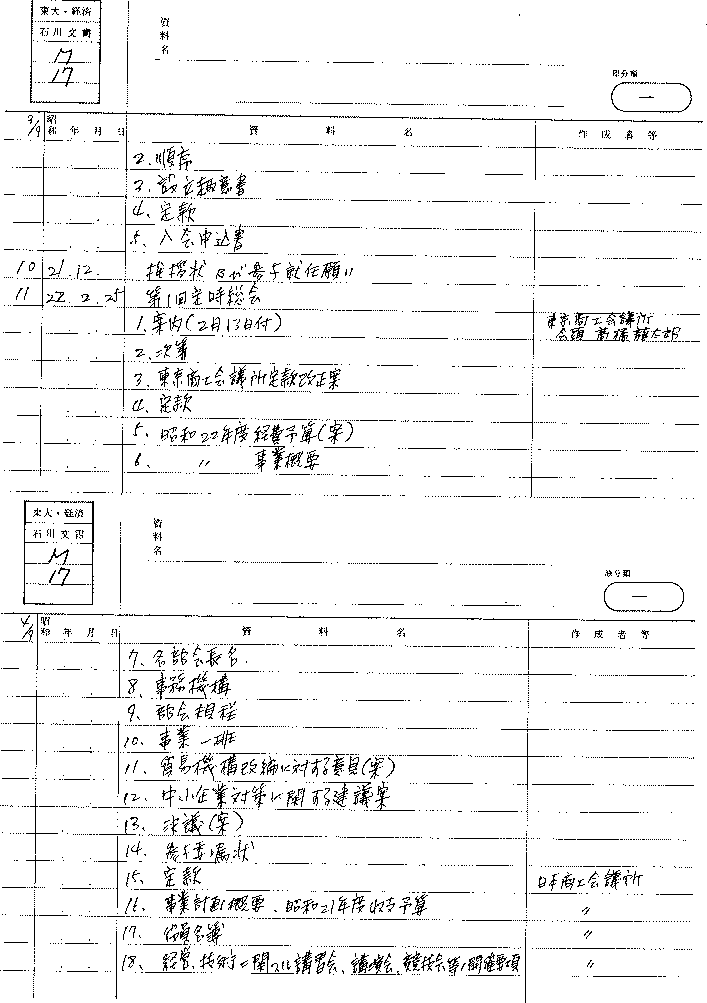 東大・経済
石川文書
M
17
資料名
原分類
一
3/9 昭和 年 月 日 資料名 作成者等
2. 順序
3. 設立趣意書
4. 定款
5. 入会申込書
10 21. 12. 挨拶状及び参与就任願い
11 22. 2. 25 第1回定時総会
1. 案内(2月13日付) 東京商工会議所
会頭 高橋龍太郎
2. 次第
3. 東京商工会議所定款改正案
4. 定款
5. 昭和22年度経費予算(案)
6. 〃 事業概要
東大・経済
石川文書
M
17
資料名
原分類
一
昭和 年 月 日 資料名 作成者等
7. 各部会長名
8. 事務機構
9. 部会規程
10. 事業一班
11. 貿易機構改編に対する意見(案)
12. 中小企業対策に関する建議案
13. 決議(案)
14. 参与委嘱状
15. 定款 日本商工会議所
16. 事業計画概要、昭和21年度収支予算 〃
17. 役員名簿 〃
18. 経営、技術ニ関スル講習会、講演会、競技会等ノ開催要項 〃